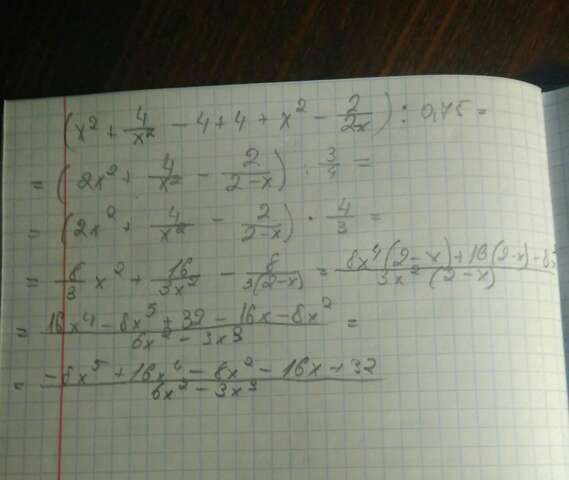 (x² + 4/x² - 4 + 4 + x² - 2/2x) : 0,75 =
= (2x² + 4/x² - 2/2-x) : 3/4 =
= (2x² + 4/x² - 2/2-x) · 4/3 =
= 8/3 x² + 16/3x² - 8/3(2-x) = 8x⁴(2-x)+16(2-x)-8x²/3x²(2-x)
= 16x⁴ - 8x⁵ + 32 - 16x - 8x²/6x² - 3x³ =
= -8x⁵ + 16x⁴ - 8x² - 16x + 32/6x² - 3x³